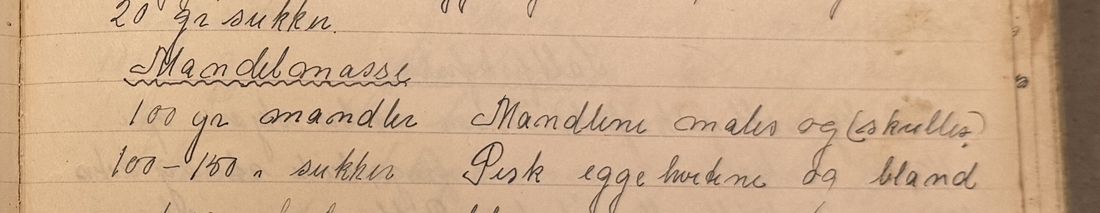 20 gr sukker.
Mandelmasse
100 gr mandler Mandlene males og (skulles)
100-150 " sukker Pisk eggehvitene og bland